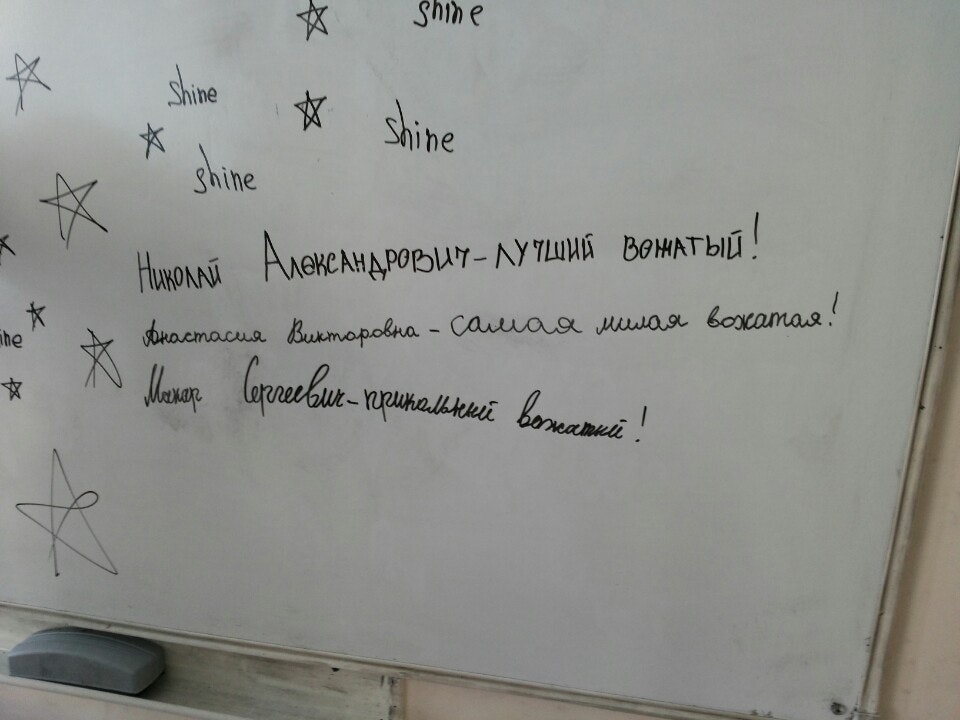 shine
shine
shine
shine
Николай Александрович - лучший вожатый!
ine
Анастасия Викторовна - самая милая вожатая!
Макар Сергеевич - прикольный вожатый!